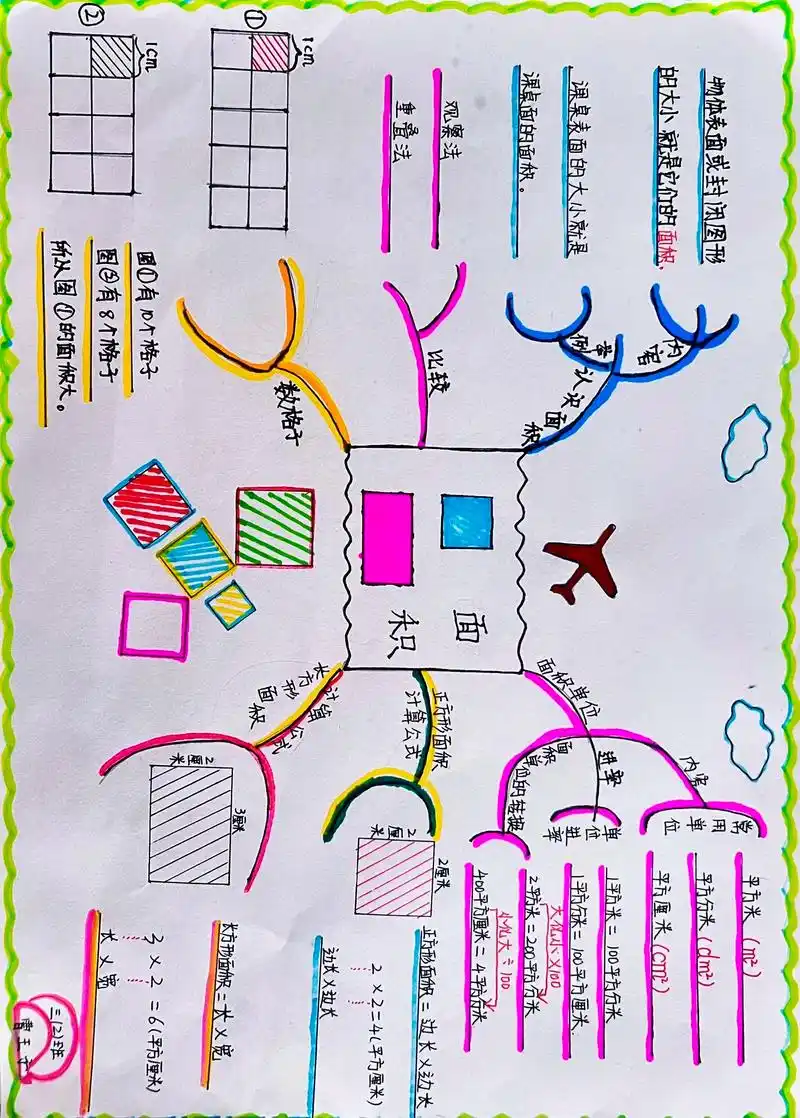 面
积
认识面积
内容
物体表面或封闭图形
的大小就是它们的面积.
举例
课桌表面的大小就是
课桌面的面积。
比较
观察法
重叠法
数格子
①
1cm
②
1cm
图①有10个格子
图②有8个格子
所从图①的面积大。
面积单位
内容
常用单位
平方米(m²)
平方分米(dm²)
平方厘米(cm²)
进率
单位进率
1平方米=100平方分米
1平方分米=100平方厘米.
面积单位的转换
2平方米=200平方分米
大化小×100
小化大÷100
400平方厘米=4平方分米
正方形面积
计算公式
2厘米
2厘米
正方形面积=边长×边长
2×2=4(平方厘米)
边长×边长
长方形面积
计算公式
2厘米
3厘米
长方形面积=长×宽
3×2=6(平方厘米)
长×宽
三(2)班